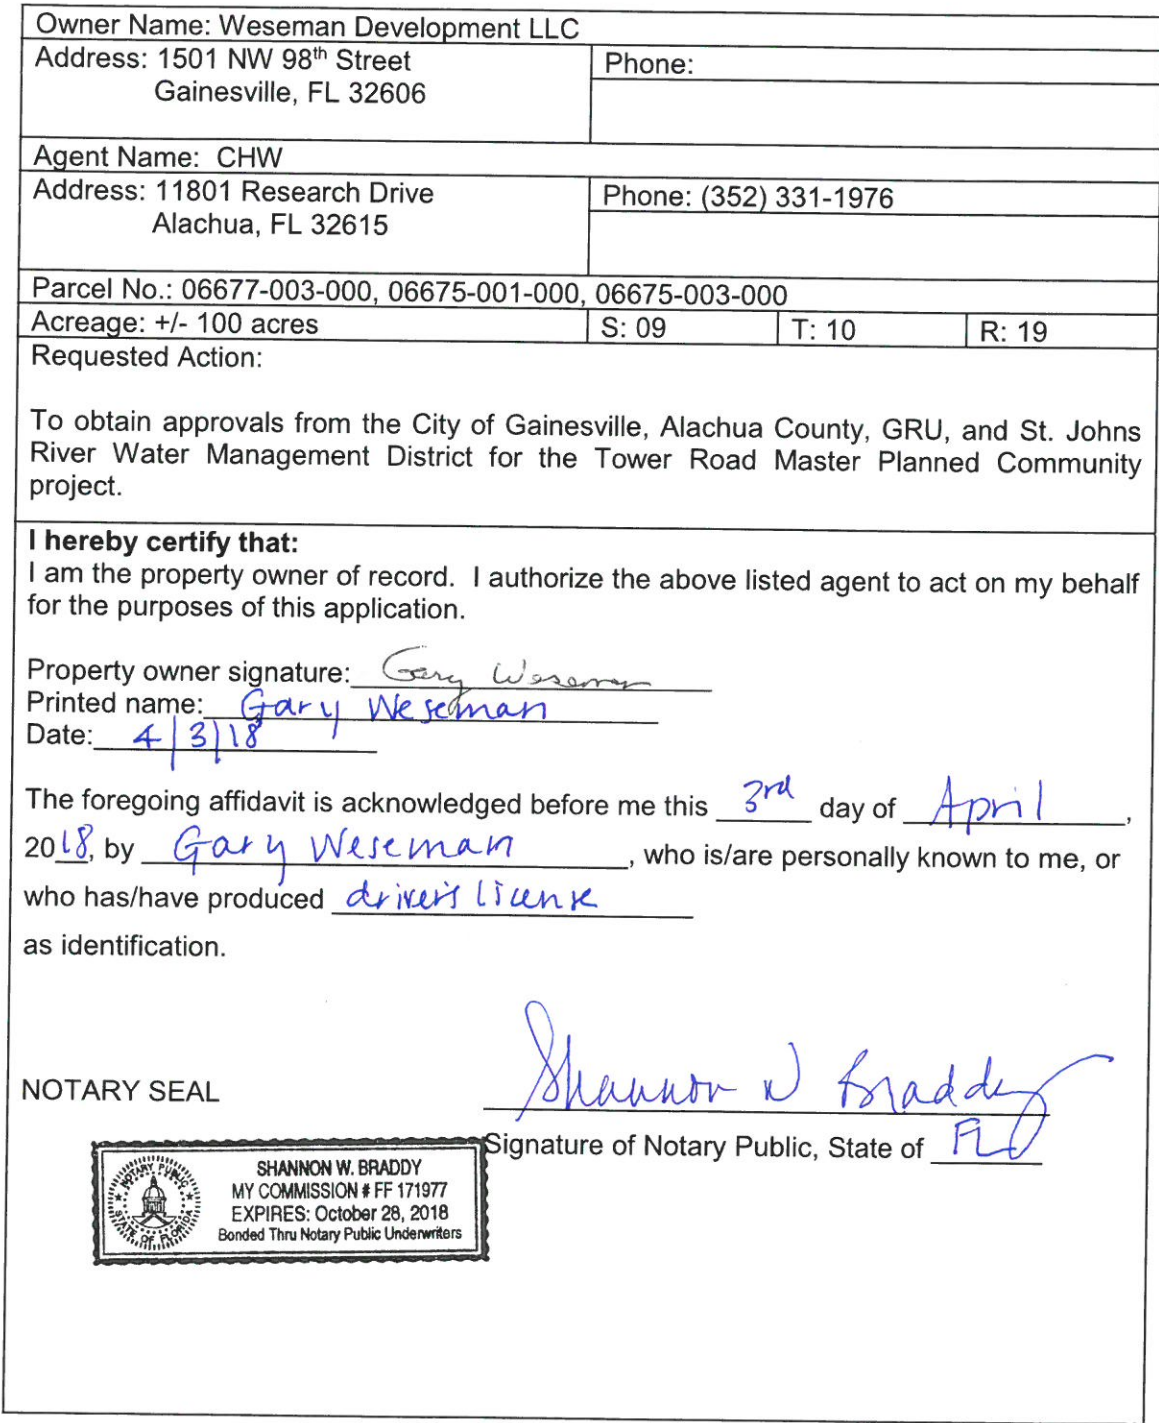 Owner Name: Weseman Development LLC
Address: 1501 NW 98th Street
Gainesville, FL 32606
Phone:
Agent Name: CHW
Address: 11801 Research Drive
Alachua, FL 32615
Phone: (352) 331-1976
Parcel No.: 06677-003-000, 06675-001-000, 06675-003-000
Acreage: +/- 100 acres S: 09 T: 10 R: 19
Requested Action:
To obtain approvals from the City of Gainesville, Alachua County, GRU, and St. Johns
River Water Management District for the Tower Road Master Planned Community
project.
I hereby certify that:
I am the property owner of record. I authorize the above listed agent to act on my behalf
for the purposes of this application.
Property owner signature: Gary Weseman
Printed name: Gary Weseman
Date: 4/3/18
The foregoing affidavit is acknowledged before me this 3rd day of April,
2018, by Gary Weseman, who is/are personally known to me, or
who has/have produced driver's license
as identification.
Shannon W Braddy
NOTARY SEAL
Signature of Notary Public, State of FL
SHANNON W. BRADDY
MY COMMISSION # FF 171977
EXPIRES: October 28, 2018
Bonded Thru Notary Public Underwriters
NOTARY PUBLIC
STATE OF FLORIDA